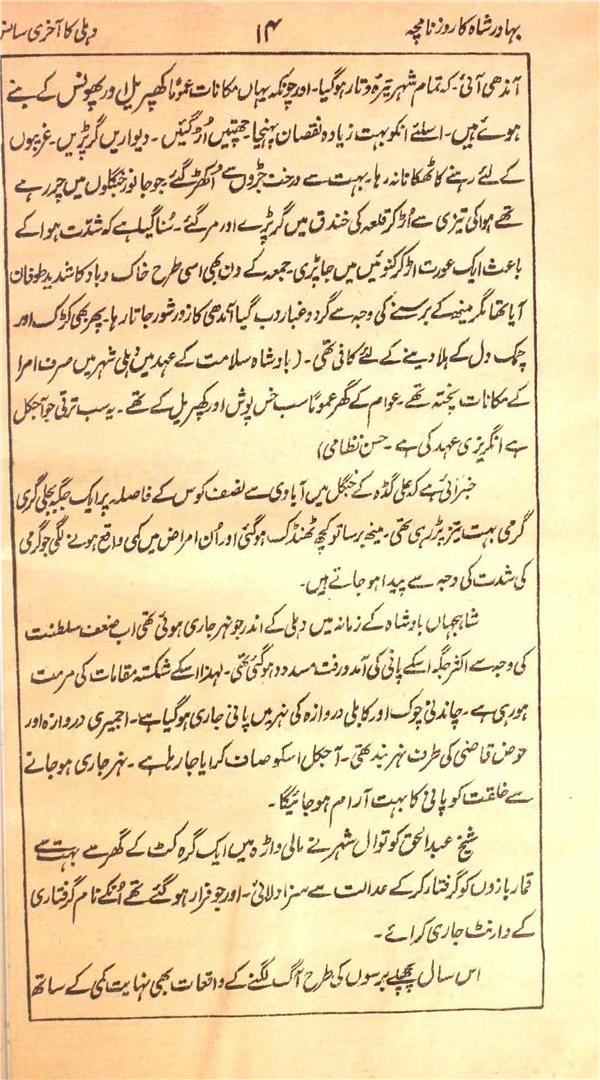 بہادر شاہ کا روزنامچہ ۱۴ دہلی کا آخری سانس
آندھی آئی۔ کہ تمام شہر تیرہ و تار ہوگیا۔ اور چونکہ یہاں مکانات عموماً کھپریل اور پھونس کے بنے
ہوئے ہیں۔ اسلئے انکو بہت زیادہ نقصان پہنچا۔ چھتیں اُڑ گئیں۔ دیواریں گر پڑیں۔ غریبوں
کے لئے رہنے کا ٹھکانا نہ رہا۔ بہت سے درخت جڑوں سے اُکھڑ گئے۔ جو جانور جنگلوں میں چر رہے
تھے ہوا کی تیزی سے اُڑ کر قلعہ کی خندق میں گر پڑے اور مر گئے۔ سُنا گیا ہے کہ شدّت ہوا کے
باعث ایک عورت اڑ کر کنوئیں میں جا پڑی۔ جمعہ کے دن بھی اسی طرح خاک و باد کا شدید طوفان
آیا تھا مگر مینھ کے برسنے کی وجہ سے گرد و غبار دب گیا آندھی کا زور شور جاتا رہا۔ پھر بھی کڑک اور
چمک دل کے ہلا دینے کے لئے کافی تھی۔ (بادشاہ سلامت کے عہد میں دہلی شہر میں صرف امرا
کے مکانات پختہ تھے۔ عوام کے گھر عموماً سب خس پوش اور کھپریل کے تھے۔ یہ سب ترقی جو آجکل
ہے انگریزی عہد کی ہے۔ حسن نظامی)
خبر آئی ہے کہ علی گڈہ کے جنگل میں آبادی سے نصف کوس کے فاصلہ پر ایک جگہ بجلی گری
گرمی بہت تیز پڑ رہی تھی۔ مینھ برسا تو کچھ ٹھنڈک ہوگئی اور اُن امراض میں کمی واقع ہونے لگی جو گرمی
کی شدت کی وجہ سے پیدا ہو جاتے ہیں۔
شاہجہاں بادشاہ کے زمانہ میں دہلی کے اندر جو نہر جاری ہوئی تھی اب ضعف سلطنت
کی وجہ سے اکثر جگہ اسکے پانی کی آمد و رفت مسدود ہوگئی تھی۔ لہذا اسکے شکستہ مقامات کی مرمت
ہو رہی ہے۔ چاندنی چوک اور کابلی دروازہ کی نہر میں پانی جاری ہوگیا ہے۔ اجمیری دروازہ اور
حوض قاضی کی طرف نہر بند تھی۔ آجکل اسکو صاف کرایا جا رہا ہے۔ نہر جاری ہو جانے
سے خلقت کو پانی کا بہت آرام ہو جائیگا۔
شیخ عبدالحق کوتوال شہر نے مالی واڑہ میں ایک گرہ کٹ کے گھر سے بہت سے
قمار بازوں کو گرفتار کر کے عدالت سے سزا دلائی۔ اور جو فرار ہو گئے تھے اُنکے نام گرفتاری
کے وارنٹ جاری کرائے۔
اس سال پچھلے برسوں کی طرح آگ لگنے کے واقعات بھی نہایت کمی کے ساتھ